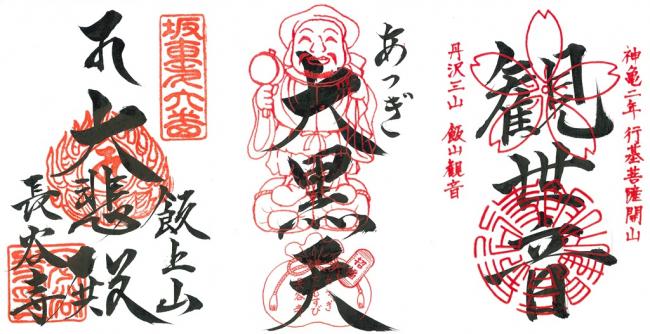 坂東第六番
大悲殿
飯上山
長谷寺
あつぎ
大黒天
神亀二年 行基菩薩開山
観世音
丹沢三山 飯山観音